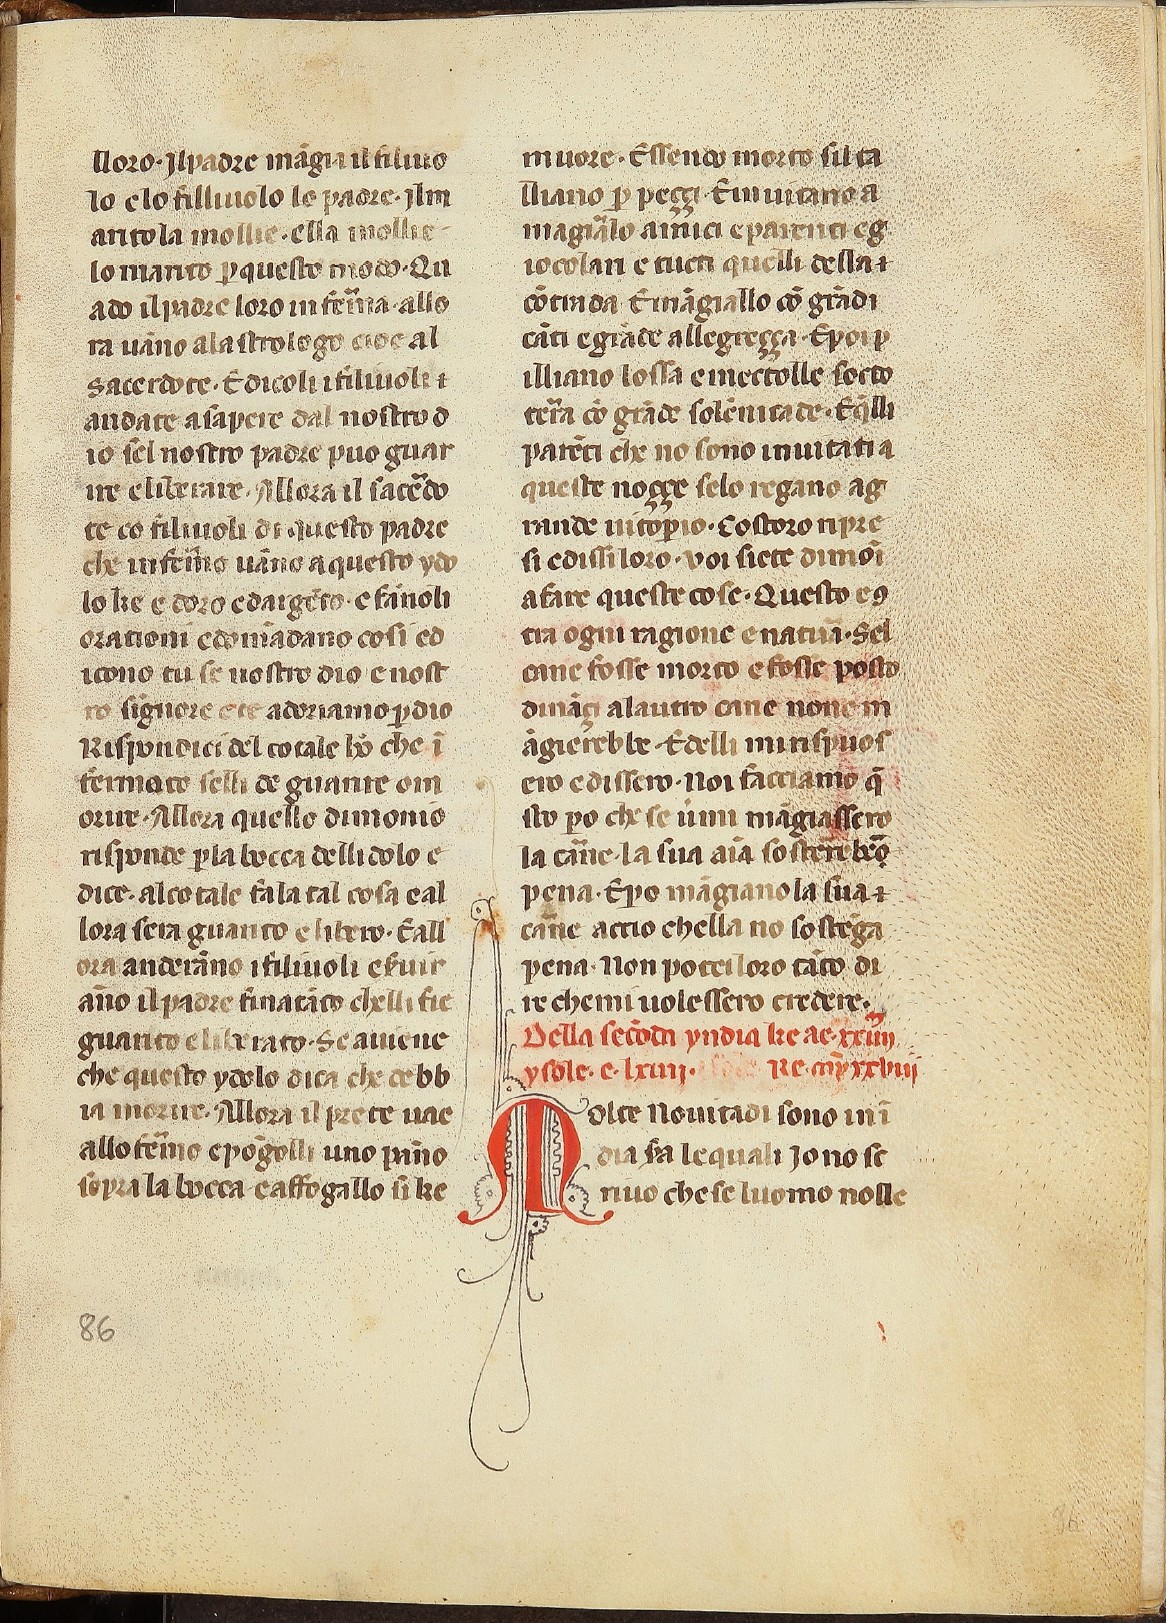 lloro. Jlpadre mãgia il filiuo
lo e lo filliuolo lo padre. Jlm
arito la mollie. ella mollie
lo marito ꝑ questo modo. Qu
ado il padre loro infẽma. allo
ra uãno ala strolego cioe al
sacerdote. E dicoli i filiuoli ⁊
andate a sapere dal nostro d
io sel nostro padre puo guar
ire e liberare. Allora il sacẽdo
te co filiuoli di questo padre
che infẽmo uãno a questo ydo
lo ke e doro e dargẽto. e fãnoli
orationi e domãdano cosi ed
icono tu se nostro dio e nost
ro signore e te adoriamo ꝑ dio
Rispondici del cotale hõ che ĩ
fermato selli de guarire o m
orire. Allora quello dimonio
risponde ꝑ la bocca dellidolo e
dice. al cotale fa la tal cosa e al
lora sera guarito e libero. E all
ora anderãno i filiuoli e fuir
ãno il padre fina tãto chelli fie
guarito e liberato. Se auiene
che questo ydolo dica che debb
ia morire. Allora il prete uae
allo fẽmo e põgolli uno pãno
sopra la bocca e affogallo si ke
muore. Essendo morto sil ta
lliano ꝑ peççi. E inuitano a
magiãlo amici e parenti e g
iocolari e tucti quelli della ⁊
cõtrada E mãgiallo cõ grãdi
cãti e grãde allegreçça. E poi p
illiano lossa e mectolle socto
terra cõ grãde solẽnitade. E q̃lli
parẽti che no sono inuitati a
queste noççe selo regano a g
rande uitoꝑio. Costoro ripre
si e dissi loro. Voi siete dimoĩ
a fare queste cose. Questo e ꝯ
tra ogni ragione e natura. Sel
cane fosse morto e fosse posto
dinãçi a laltro cane none m
ãgierebbe. Edelli mi rispuos
ero e dissero. Noi facciamo q̃
sto ꝑo che se uimi mãgiassero
la carne. la sua aĩa sosterrebbe
pena. E ꝑo mãgiano la sua ⁊
carne accio chella no sostẽga
pena. Non potei loro tãto di
re che mi uolessero credere.
Della secõda yndia ke ae. xxiiij
ysole. e. lxiiij. Re. xxviij
Molte Nouitadi sono in ĩ
dia fa le quali Jo no sc
riuo che se luomo nolle
86
86